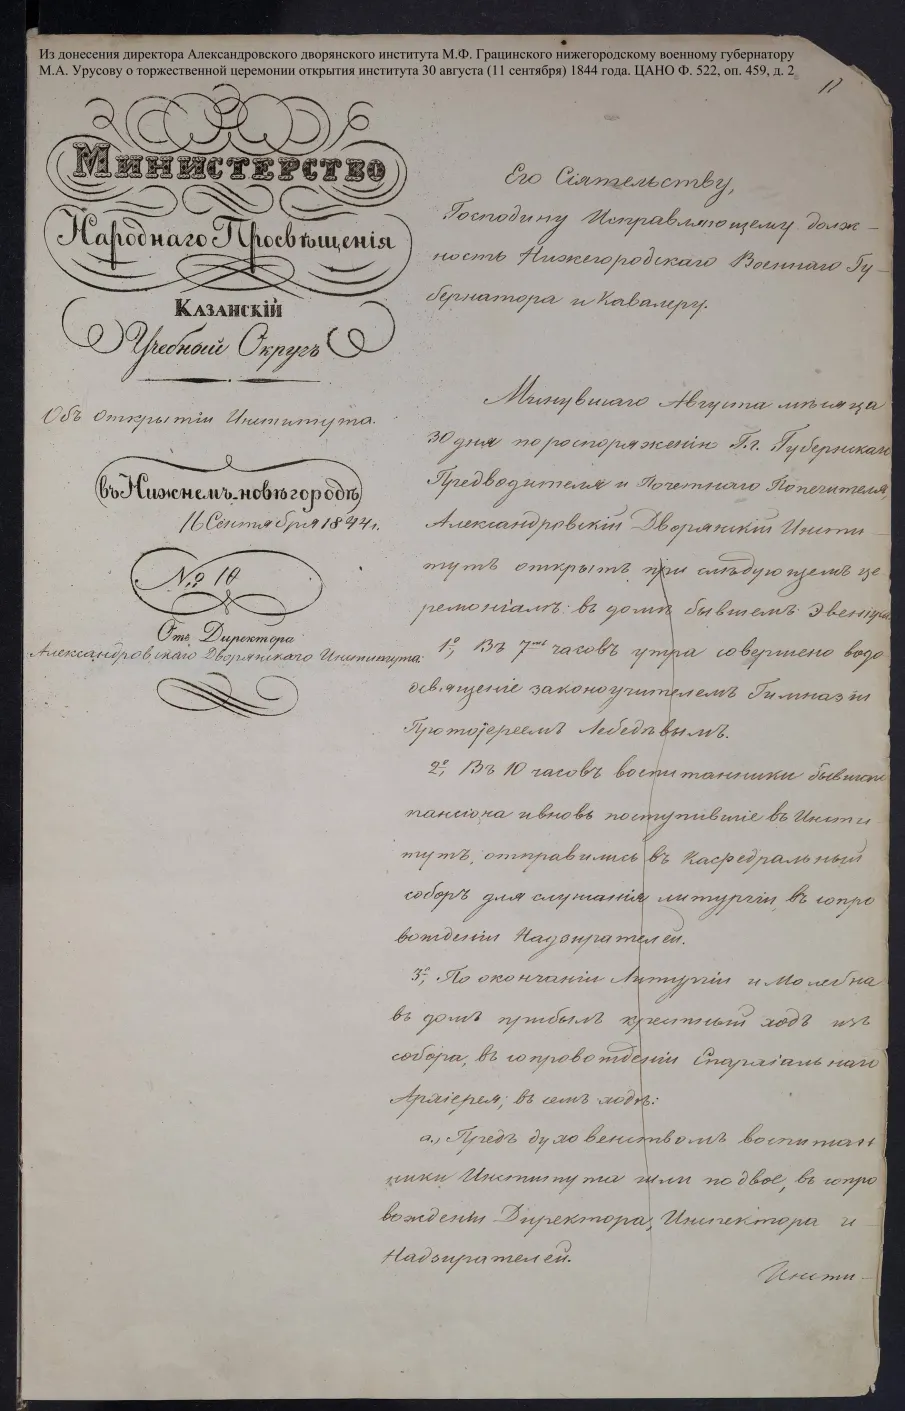 Из донесения директора Александровского дворянского института М.Ф. Грацинского нижегородскому военному губернатору
М.А. Урусову о торжественной церемонии открытия института 30 августа (11 сентября) 1844 года. ЦАНО Ф. 522, оп. 459, д. 2
Министерство
Народнаго Просвѣщенія
Казанскій
Учебный Округъ
Объ открытіи Института.
въ Нижнемъ-новѣгородѣ
16 Сентября 1844 г.
№ 10
Отъ Директора
Александровскаго Дворянскаго Института
Его Сіятельству,
Господину Исправляющему долж-
ность Нижегородскаго Военнаго Гу-
бернатора и Кавалеру.
Минувшаго Августа мѣсяца
30 дня по распоряженію Гг. Губернскаго
Предводителя и Почетнаго Попечителя,
Александровскій Дворянскій Инсти-
тутъ открытъ при слѣдующемъ це-
ремоніалѣ: въ домѣ бывшемъ
1е, Въ 7 часовъ утра совершено водо
освященіе законоучителемъ Гимназіи
Протоіереемъ Лебедевымъ.
2е, Въ 10 часовъ воспитанники бывшаго
пансіона и вновь поступившіе въ Инсти
тутъ, отправились въ Кафедральный
соборъ для слушанія литургіи, въ сопро
вожденіи Надзирателей.
3е, По окончаніи Литургіи и Молебна
въ домъ прибылъ крестный ходъ изъ
собора, въ сопровожденіи Епархіальнаго
Архіерея; въ семъ ходѣ:
а., Предъ духовенствомъ воспитан
ники Института шли по двое, въ сопро
вожденіи Директора, Инспектора и
Надзирателей.
Инсти-